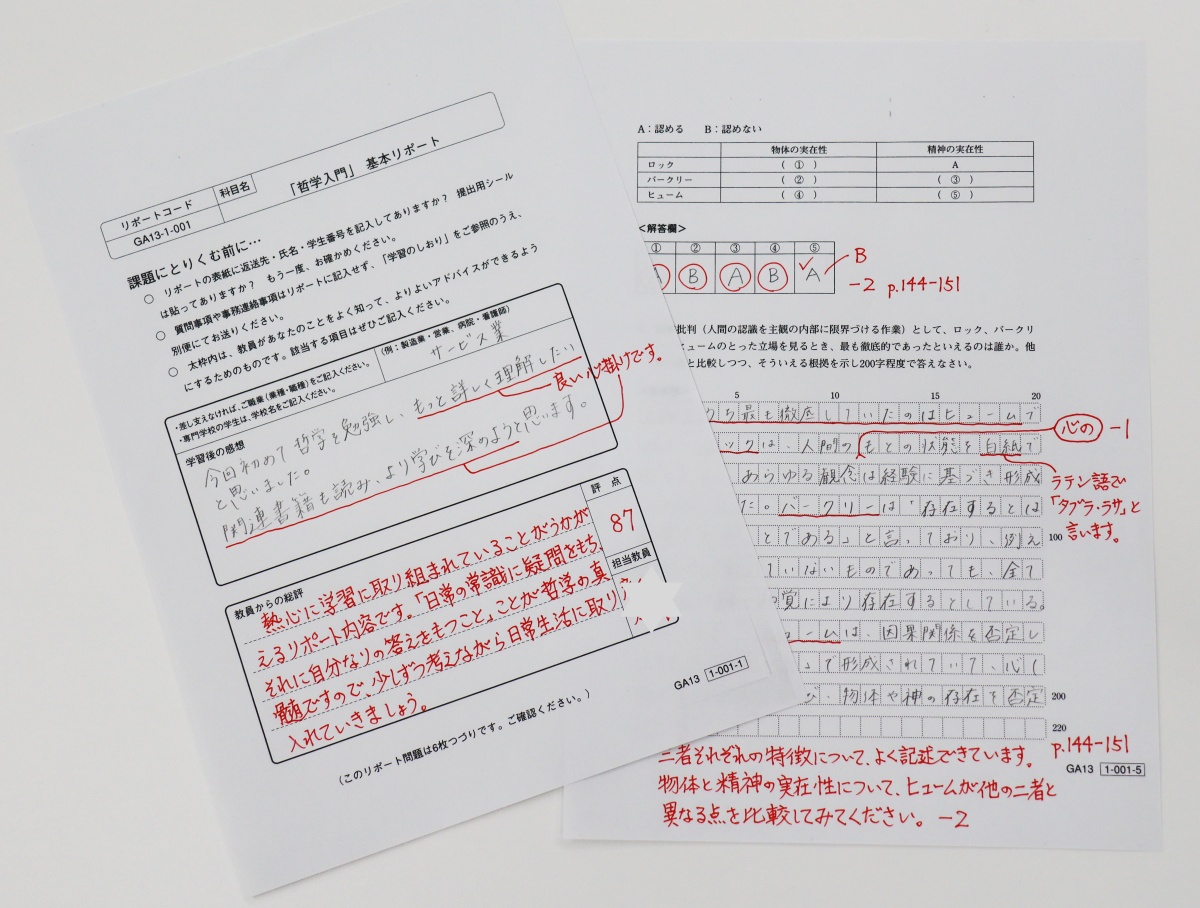 リポートコード
科目名
GA13-1-001
「哲学入門」 基本リポート
課題にとりくむ前に…
○ リポートの表紙に返送先・氏名・学生番号を記入してありますか? 提出用シール
は貼ってありますか? もう一度、お確かめください。
○ 質問事項や事務連絡事項はリポートに記入せず、「学習のしおり」をご参照のうえ、
別便にてお送りください。
○ 太枠内は、教員があなたのことをよく知って、よりよいアドバイスができるよう
にするためのものです。該当する項目はぜひご記入ください。
・差し支えなければ、ご職業(業種・職種)をご記入ください。
・専門学校の学生は、学校名をご記入ください。
(例:製造業・営業、病院・看護師)
サービス業
学習後の感想
今回初めて哲学を勉強し、もっと詳しく理解したい
と思いました。
関連書籍も読み、より学びを深めようと思います。
良い心掛けです。
教員からの総評
熱心に学習に取り組まれていることがうかが
えるリポート内容です。「日常の常識に疑問をもち、
それに自分なりの答えをもつこと」ことが哲学の真
髄ですので、少しずつ考えながら日常生活に取り
入れていきましょう。
評 点
87
担当教員
GA13 1-001-1
(このリポート問題は6枚つづりです。ご確認ください。)
A:認める B:認めない
物体の実在性 精神の実在性
ロック ( ① ) A
バークリー ( ② ) ( ③ )
ヒューム ( ④ ) ( ⑤ )
<解答欄>
① ② ③ ④ ⑤
B A B A
B
-2 p.144-151
批判(人間の認識を主観の内部に限界づける作業)として、ロック、バークリ
ヒュームのとった立場を見るとき、最も徹底的であったといえるのは誰か。他
と比較しつつ、そういえる根拠を示し200字程度で答えなさい。
5 10 20
うち最も徹底していたのはヒュームで
ックは、人間のもとの状態を白紙で
心の -1
あらゆる観念は経験に基づき形成
ラテン語で
「タブラ・ラサ」と
言います。
た。バークリーは「存在するとは
とである」と言っており、例え 100
ていないものであっても、全て
覚により存在するとしている。
ュームは、因果関係を否定し
」で形成されていて、心(
び、物体や神の存在を否定 200
220
三者それぞれの特徴について、よく記述できています。
p.144-151
GA13 1-001-5
物体と精神の実在性について、ヒュームが他の二者と
異なる点を比較してみてください。 -2